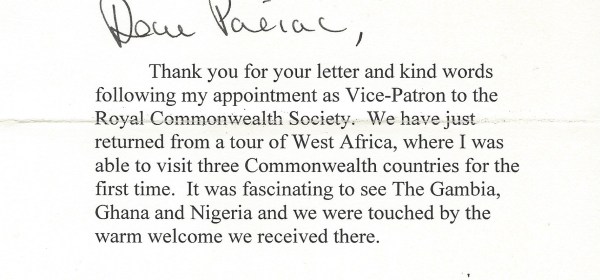 Dear Patriac,
Thank you for your letter and kind words
following my appointment as Vice-Patron to the
Royal Commonwealth Society.  We have just
returned from a tour of West Africa, where I was
able to visit three Commonwealth countries for the
first time.  It was fascinating to see The Gambia,
Ghana and Nigeria and we were touched by the
warm welcome we received there.